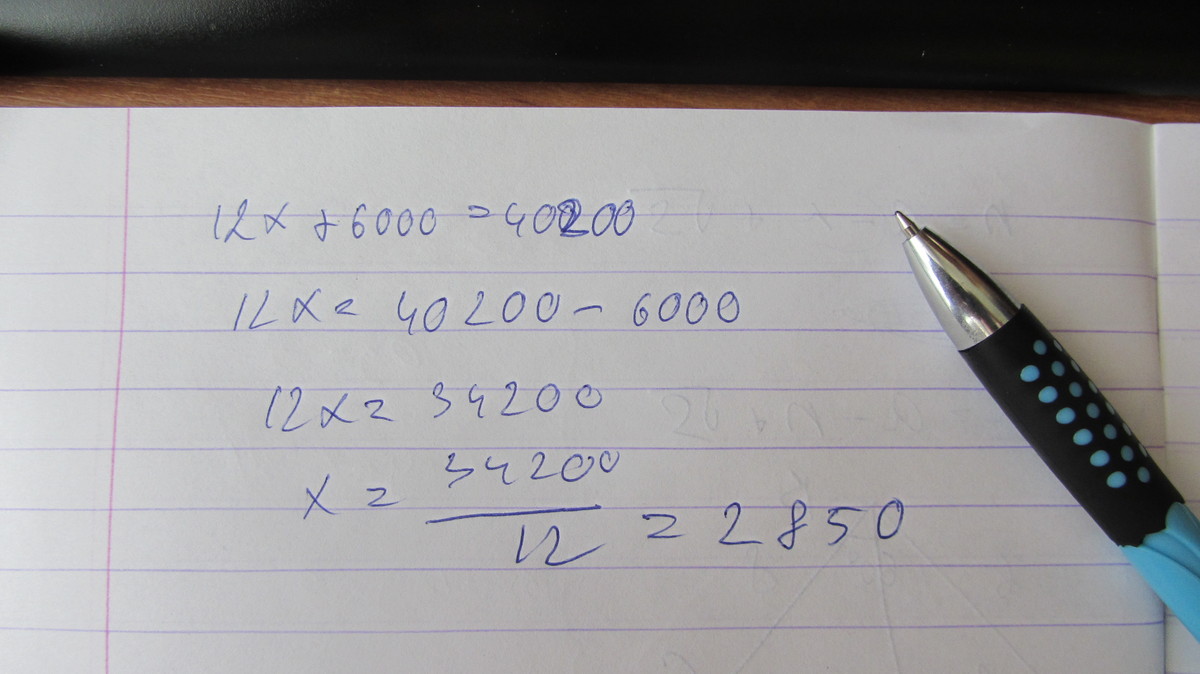 12x + 6000 = 40200
12x = 40200 - 6000
12x = 34200
x = 34200/12 = 2850